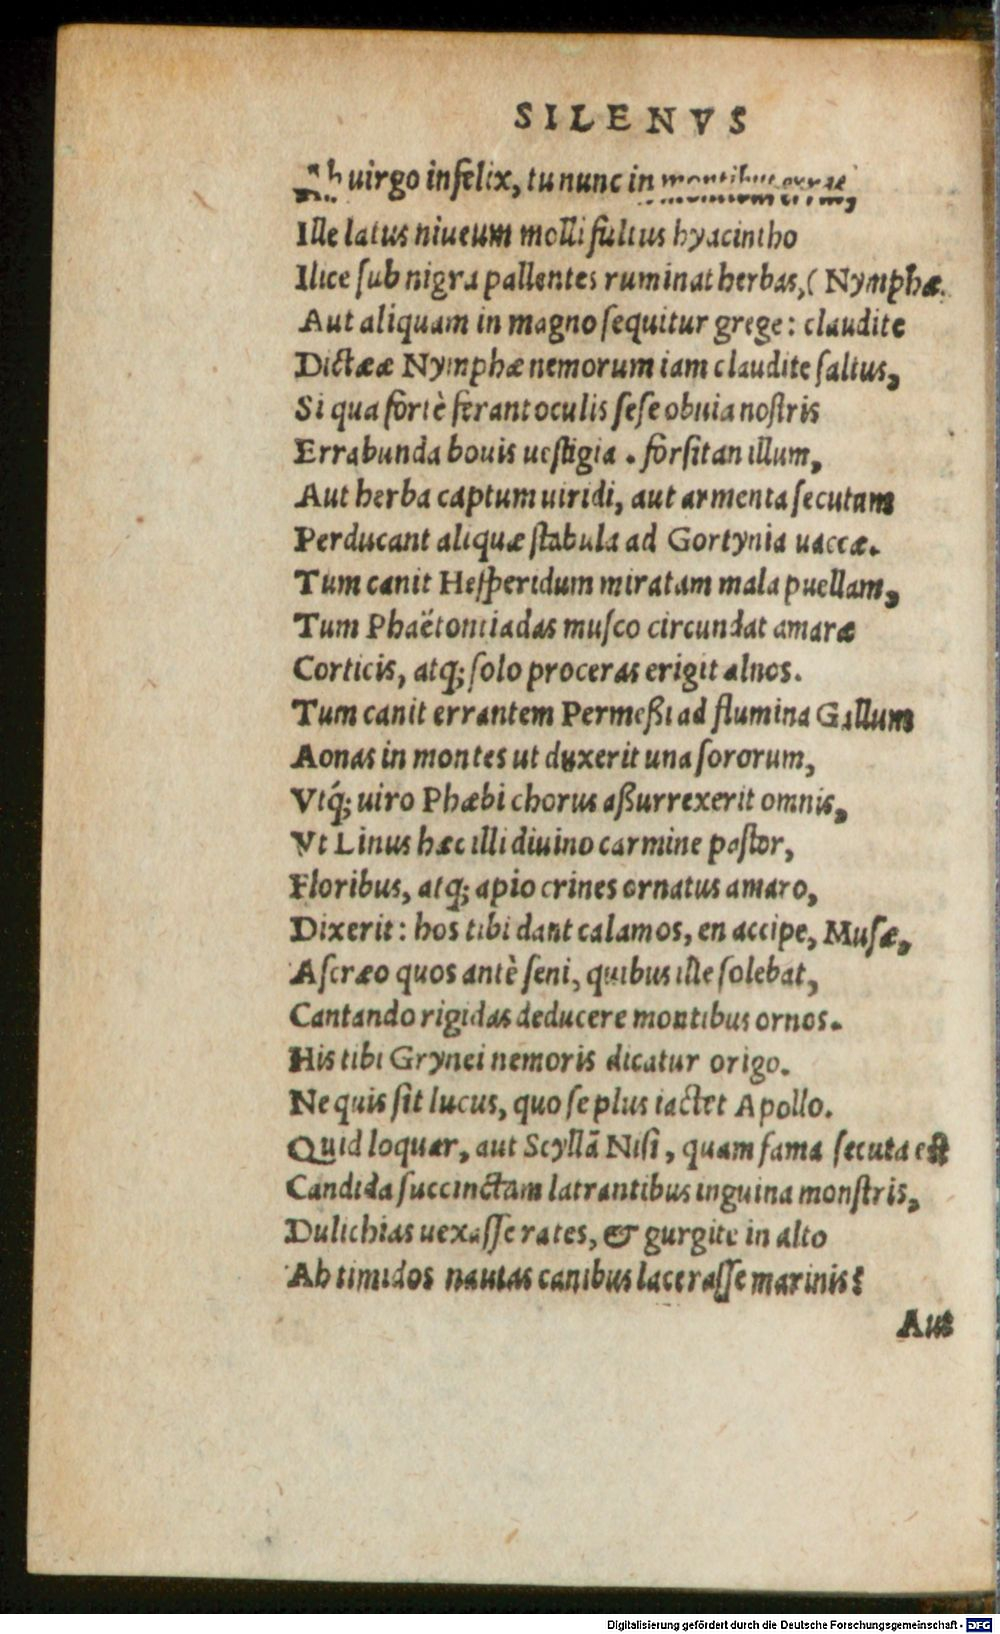 SILENVS
Ah uirgo infelix, tu nunc in montibus erras,
Ille latus niueum molli fultus hyacintho
Ilice ſub nigra pallentes ruminat herbas, (Nymphæ.
Aut aliquam in magno ſequitur grege: claudite
Dictææ Nymphæ nemorum iam claudite ſaltus,
Si qua fortè ferant oculis ſeſe obuia noſtris
Errabunda bouis ueſtigia. forſitan illum,
Aut herba captum uiridi, aut armenta ſecutum
Perducant aliquæ ſtabula ad Gortynia uaccæ.
Tum canit Heſperidum miratam mala puellam,
Tum Phaëtontiadas muſco circundat amaræ
Corticis, atq; ſolo proceras erigit alnos.
Tum canit errantem Permeßi ad flumina Gallum
Aonas in montes ut duxerit una ſororum,
Vtq́; uiro Phœbi chorus aßurrexerit omnis,
Vt Linus hæc illi diuino carmine paſtor,
Floribus, atq; apio crines ornatus amaro,
Dixerit: hos tibi dant calamos, en accipe, Muſæ,
Aſcræo quos antè ſeni, quibus ille ſolebat,
Cantando rigidas deducere montibus ornos.
His tibi Grynei nemoris dicatur origo.
Ne quis ſit lucus, quo ſe plus iactet Apollo.
Quid loquar, aut Scyllã Niſi, quam fama ſecuta eſt
Candida ſuccinctam latrantibus inguina monſtris,
Dulichias uexaſſe rates, & gurgite in alto
Ah timidos nautas canibus laceraſſe marinis?
Aut
Digitalisierung gefördert durch die Deutsche Forschungsgemeinschaft - DFG